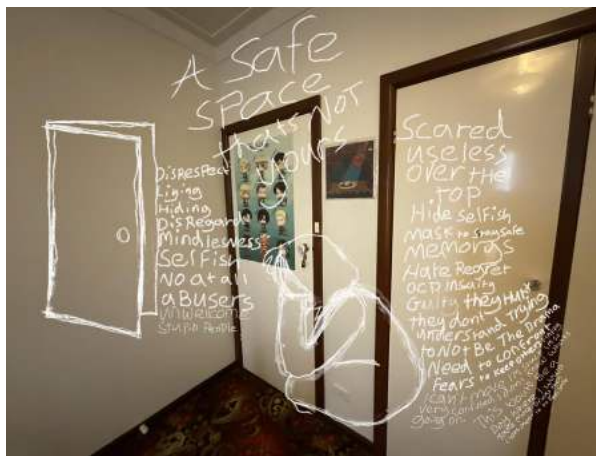 A Safe
space
thats Not
yours
DisRespect
Liging
Hiding
DisRegard
Mindlesness
Selfish
No at all
aBusers
UnWelcome
Stupid People
Scared
useless
over the
top
Hide selfish
mask to stay safe
memorys
Hate Regret
OCD insaity
Guilty they HURT
they dont
understand Trying
to Not Be The Drama
Need to confront
fears to keep others
I cant move
very confined
going on
This would be a